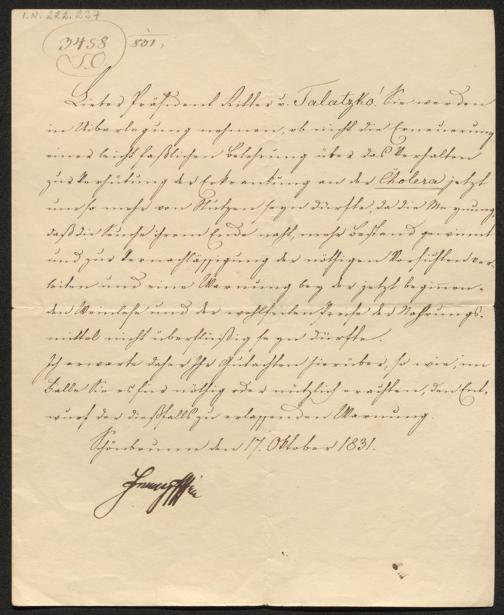 I.N. 222.237
3458 / 831.
Lieber Präsident Ritter v. Talatzko! Sie werden
in Überlegung nehmen, ob nicht die Erneuerung
einer leicht faßlichen Belehrung über das Verhalten
zur Verhütung der Erkrankung an der Cholera jetzt
um so mehr von Nutzen seyn dürfte, da die Meynung,
daß die Seuche ihrem Ende naht, mehr Bestand gewinnt
und zur Vernachläßigung der nöthigen Vorsichten ver-
leiten und eine Warnung bey der jetzt beginnen-
den Weinlese und der wohlfeilen Preise der Nahrungs-
mittel nicht überflüßig seyn dürfte.
Ich erwarte daher Ihr Gutachten hierüber, so wie, im
Falle Sie es für nöthig oder nützlich erachten, den Ent-
wurf der dießfalls zu erlassenden Warnung.
Schönbrunn den 17. Oktober 1831.